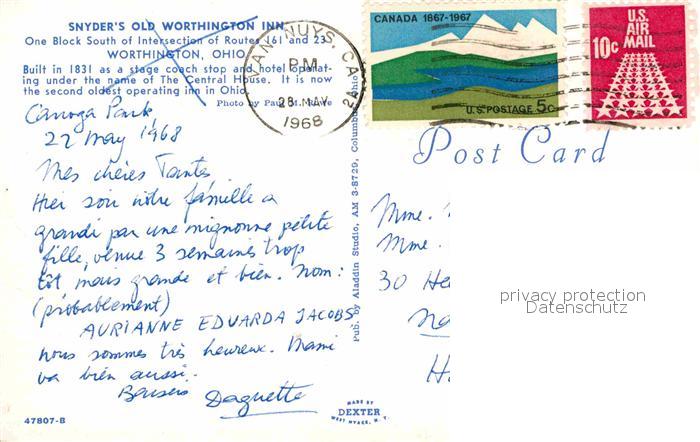 SNYDER'S OLD WORTHINGTON INN
One Block South of Intersection of Routes 161 and 23
WORTHINGTON, OHIO
Built in 1831 as a stage coach stop and hotel operat-
ing under the name of The Central House. It is now
the second oldest operating inn in Ohio.
Photo by Paul
Canoga Park
22 May 1968
Mes chères Tantes
Hier soir notre famille a
grandi par une mignonne petite
fille, venue 3 semaines trop
tôt mais grande et bien. Nom:
(probablement)
AURIANNE EDUARDA JACOBS
nous sommes très heureux. Mami
va bien aussi.
Baisers Daguette
47807-B
Pub. by Aladdin Studio, AM 3-8729, Columbus, Ohio
MADE BY
DEXTER
WEST NYACK, N. Y.
VAN NUYS, CA
PM
23 MAY
1968
CANADA 1867-1967
U.S. POSTAGE 5c
U.S.
AIR
MAIL
10c
Post Card
Mme.
Mme.
30 He
Na
H
privacy protection
Datenschutz